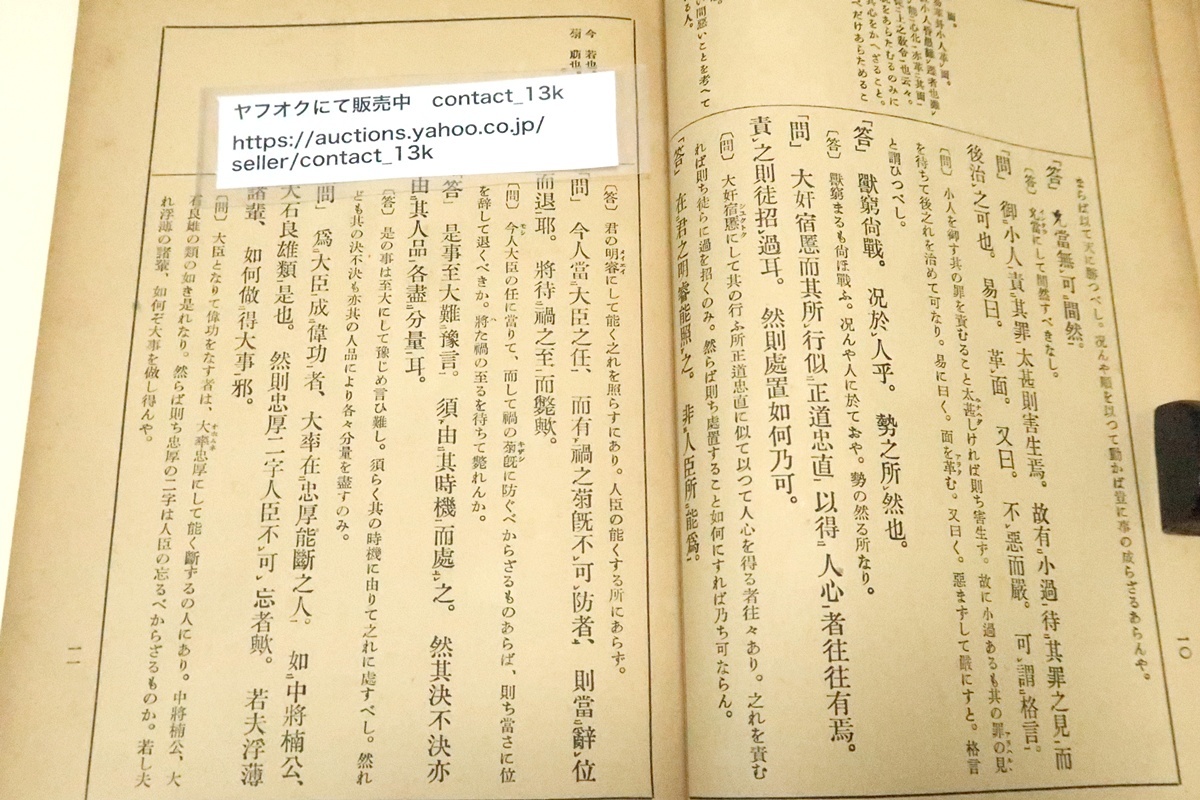 面。
一〇
まらば以て天に勝つべし。况んや順を以つて動かば豈に事の成らざるあらんや。
「答」 允當無可間然。
〔答〕 允當にして間然すべきなし。
「問」 御小人責其罪太甚則害生焉。 故有小過待其罪之見而
後治之可也。 易曰。 革面。 又曰。 不惡而嚴。 可謂格言。
〔問〕 小人を御す其の罪を責むること太甚しければ則ち害生ず。故に小過あるも其の罪の見
を待ちて後之れを治めて可なり。易に曰く。面を革む。又曰く。惡まずして嚴にすと。格言
と謂ひつべし。
「答」 獸窮尙戰。 况於人乎。 勢之所然也。
〔答〕 獸窮まるも尙ほ戰ふ。况んや人に於ておや。勢の然る所なり。
「問」 大奸宿慝而其所行似正道忠直以得人心者往往有焉。
責之則徒招過耳。 然則處置如何乃可。
〔問〕 大奸宿慝にして其の行ふ所正道忠直に似て以つて人心を得る者往々あり。之れを責む
れば則ち徒らに過を招くのみ。然らば則ち處置すること如何にすれば乃ち可ならん。
「答」 在君之明睿能照之。 非人臣所能爲。
今 若也
ヤフオクにて販売中 contact_13k
https://auctions.yahoo.co.jp/
seller/contact_13k
〔答〕 君の明睿にして能く之れを照らすにあり。人臣の能くする所にあらず。
「問」 今人當大臣之任、 而有禍之萌既不可防者、 則當辭位
而退耶。 將待禍之至而斃歟。
〔問〕 今人大臣の任に當りて、而して禍の萌既に防ぐべからざるものあらば、則ち當さに位
を辭して退くべきか。將た禍の至るを待ちて斃れんか。
答」 是事至大難豫言。 須由其時機而處之。 然其決不決亦
由其人品各盡分量耳。
〔答〕 是の事は至大にして豫じめ言ひ難し。須らく其の時機に由りて之れに處すべし。然れ
ども其の決不決も亦其の人品により各々分量を盡すのみ。
問」 爲大臣成偉功者、 大率在忠厚能斷之人。 如中將楠公、
大石良雄類是也。 然則忠厚二字人臣不可忘者歟。 若夫浮薄
諸輩、 如何做得大事邪。
〔問〕 大臣となりて偉功をなす者は、大率忠厚にして能く斷ずるの人にあり。中將楠公、大
石良雄の類の如き是れなり。然らば則ち忠厚の二字は人臣の忘るべからざるものか。若し夫
れ浮薄の諸輩、如何ぞ大事を做し得んや。
一一